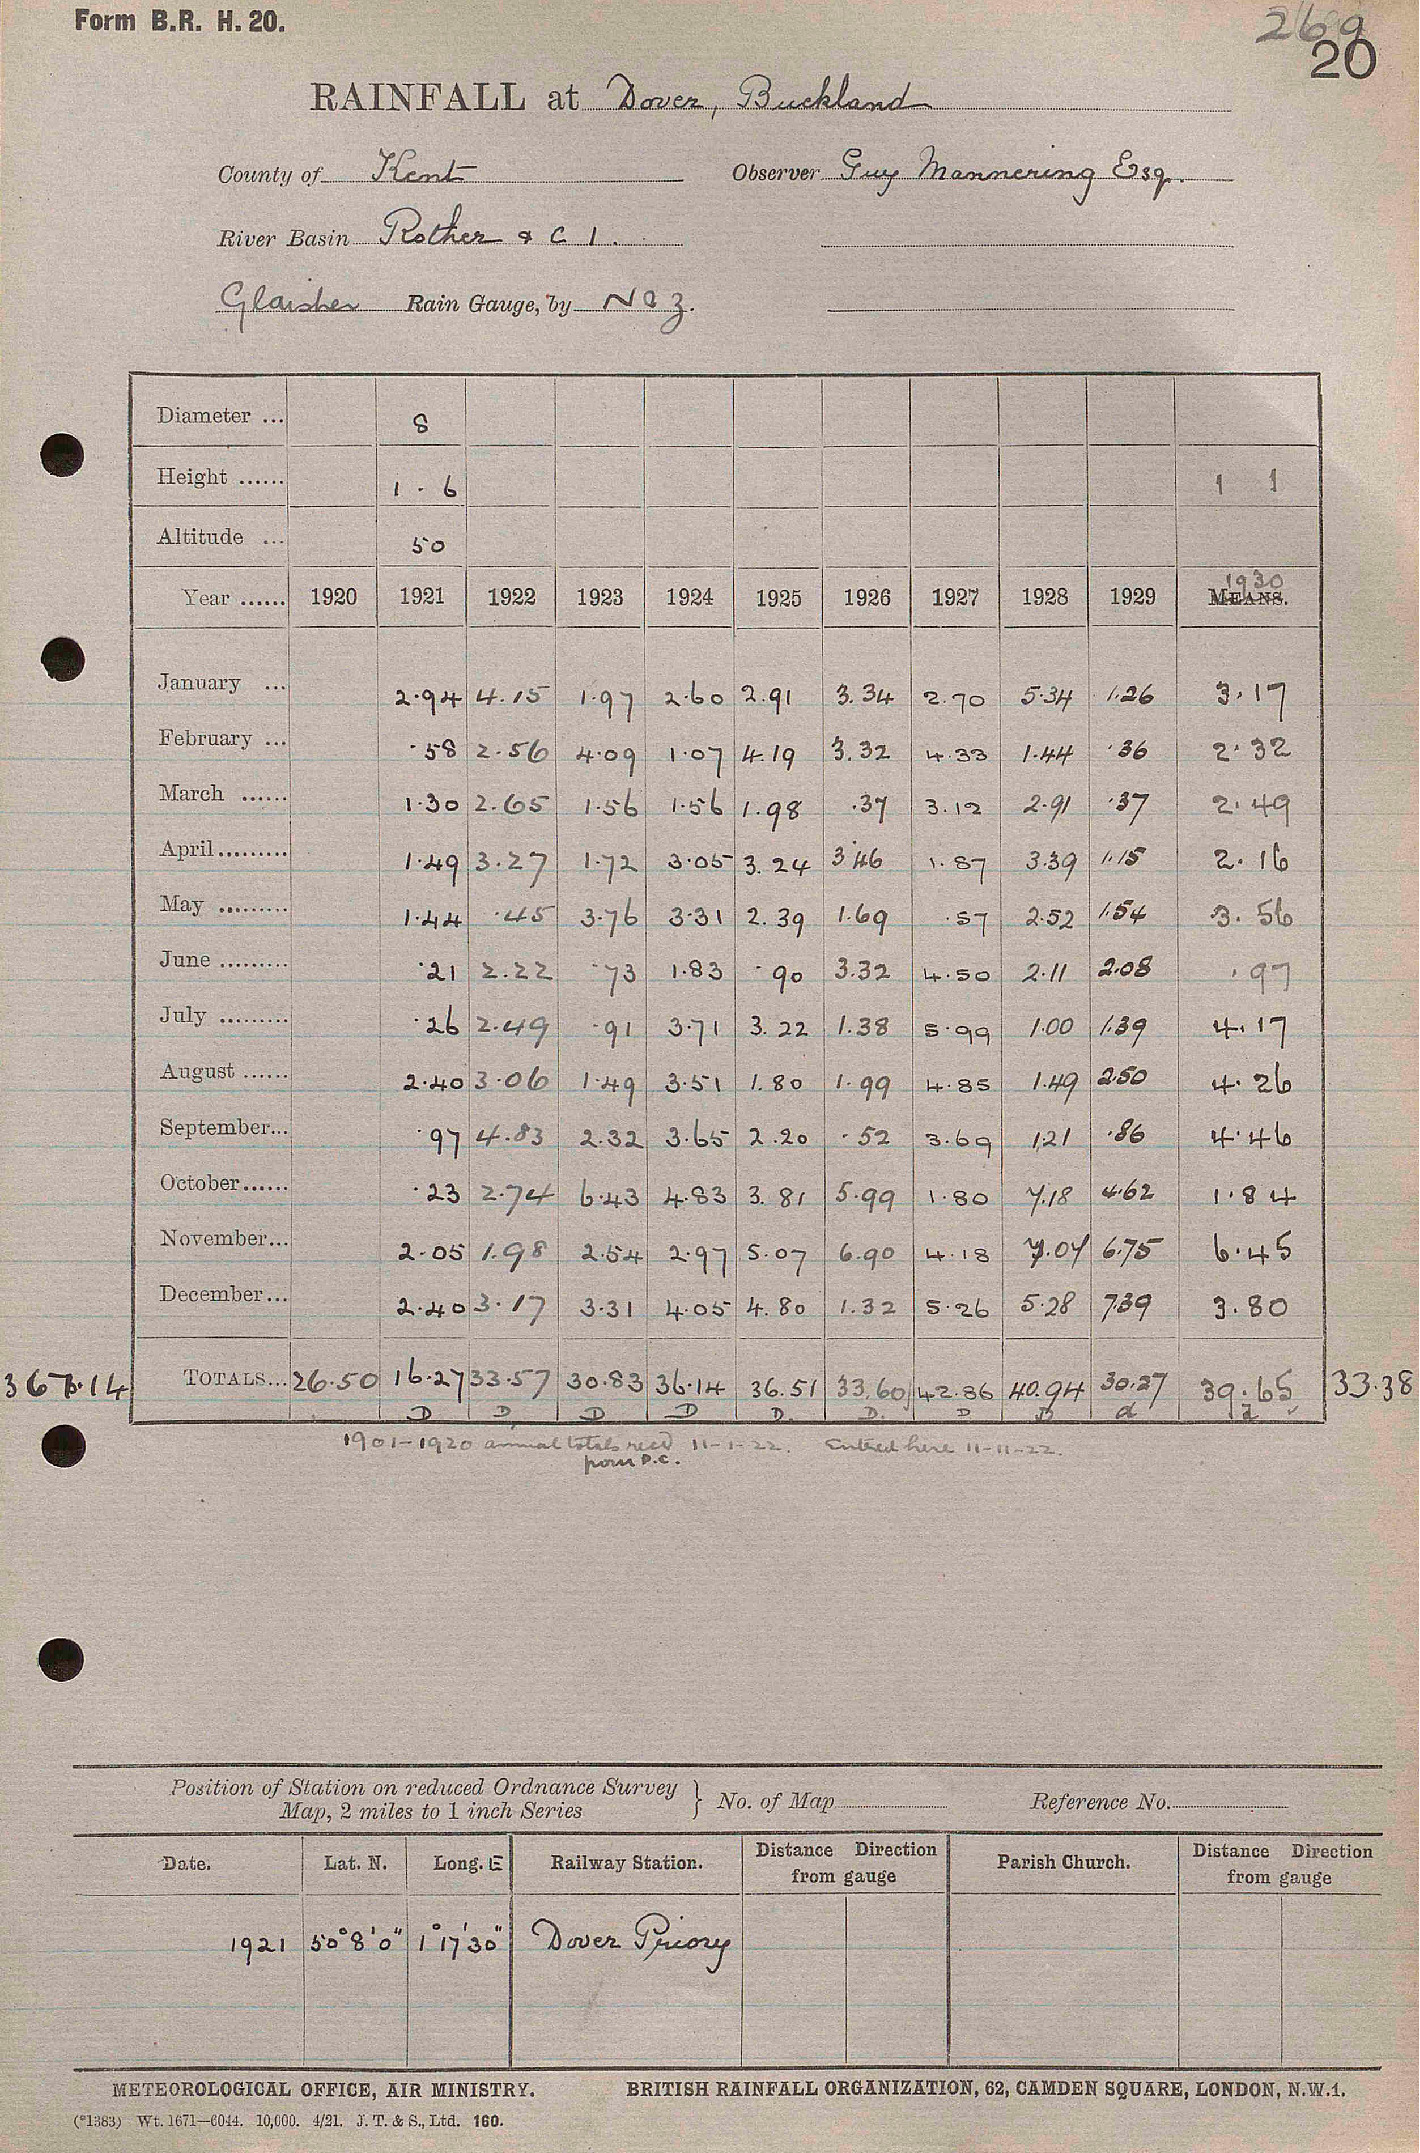 Form B.R. H. 20.
269
20
RAINFALL at Dover, Buckland
County of Kent Observer Guy Mannering Esq.
River Basin Rother & C 1.
Glaisher Rain Gauge, by N & Z.
Diameter ... 8
Height ...... 1 . 6 1 1
Altitude ... 50
1930
Year ...... 1920 1921 1922 1923 1924 1925 1926 1927 1928 1929 MEANS.
January ... 2.94 4.15 1.97 2.60 2.91 3.34 2.70 5.34 1.26 3.17
February ... .58 2.56 4.09 1.07 4.19 3.32 4.33 1.44 .36 2.32
March ...... 1.30 2.65 1.56 1.56 1.98 .37 3.12 2.91 .37 2.49
April......... 1.49 3.27 1.72 3.05 3.24 3.46 1.87 3.39 1.15 2.16
May ......... 1.44 .45 3.76 3.31 2.39 1.69 .57 2.52 1.54 3.56
June ......... .21 2.22 .73 1.83 .90 3.32 4.50 2.11 2.08 .97
July ......... .26 2.49 .91 3.71 3.22 1.38 5.99 1.00 1.39 4.17
August ...... 2.40 3.06 1.49 3.51 1.80 1.99 4.85 1.49 2.50 4.26
September... .97 4.83 2.32 3.65 2.20 .52 3.69 1.21 .86 4.46
October...... .23 2.74 6.43 4.83 3.81 5.99 1.80 7.18 4.62 1.84
November... 2.05 1.98 2.54 2.97 5.07 6.90 4.18 7.07 6.75 6.45
December... 2.40 3.17 3.31 4.05 4.80 1.32 5.26 5.28 7.39 3.80
367.14 TOTALS... 26.50 16.27 33.57 30.83 36.14 36.51 33.60 42.86 40.94 30.27 39.65 33.38
D D D D D. D. D D d d
1901-1920 annual totals recd 11-1-22. Entered here 11-11-22.
from D.C.
Position of Station on reduced Ordnance Survey
Map, 2 miles to 1 inch Series } No. of Map Reference No.
Date. Lat. N. Long. E Railway Station. Distance Direction from gauge Parish Church. Distance Direction from gauge
1921 50° 8' 0" 1° 17' 30" Dover Priory
METEOROLOGICAL OFFICE, AIR MINISTRY. BRITISH RAINFALL ORGANIZATION, 62, CAMDEN SQUARE, LONDON, N.W.1.
(*1383) Wt. 1671—6044. 10,000. 4/21. J. T. & S., Ltd. 160.